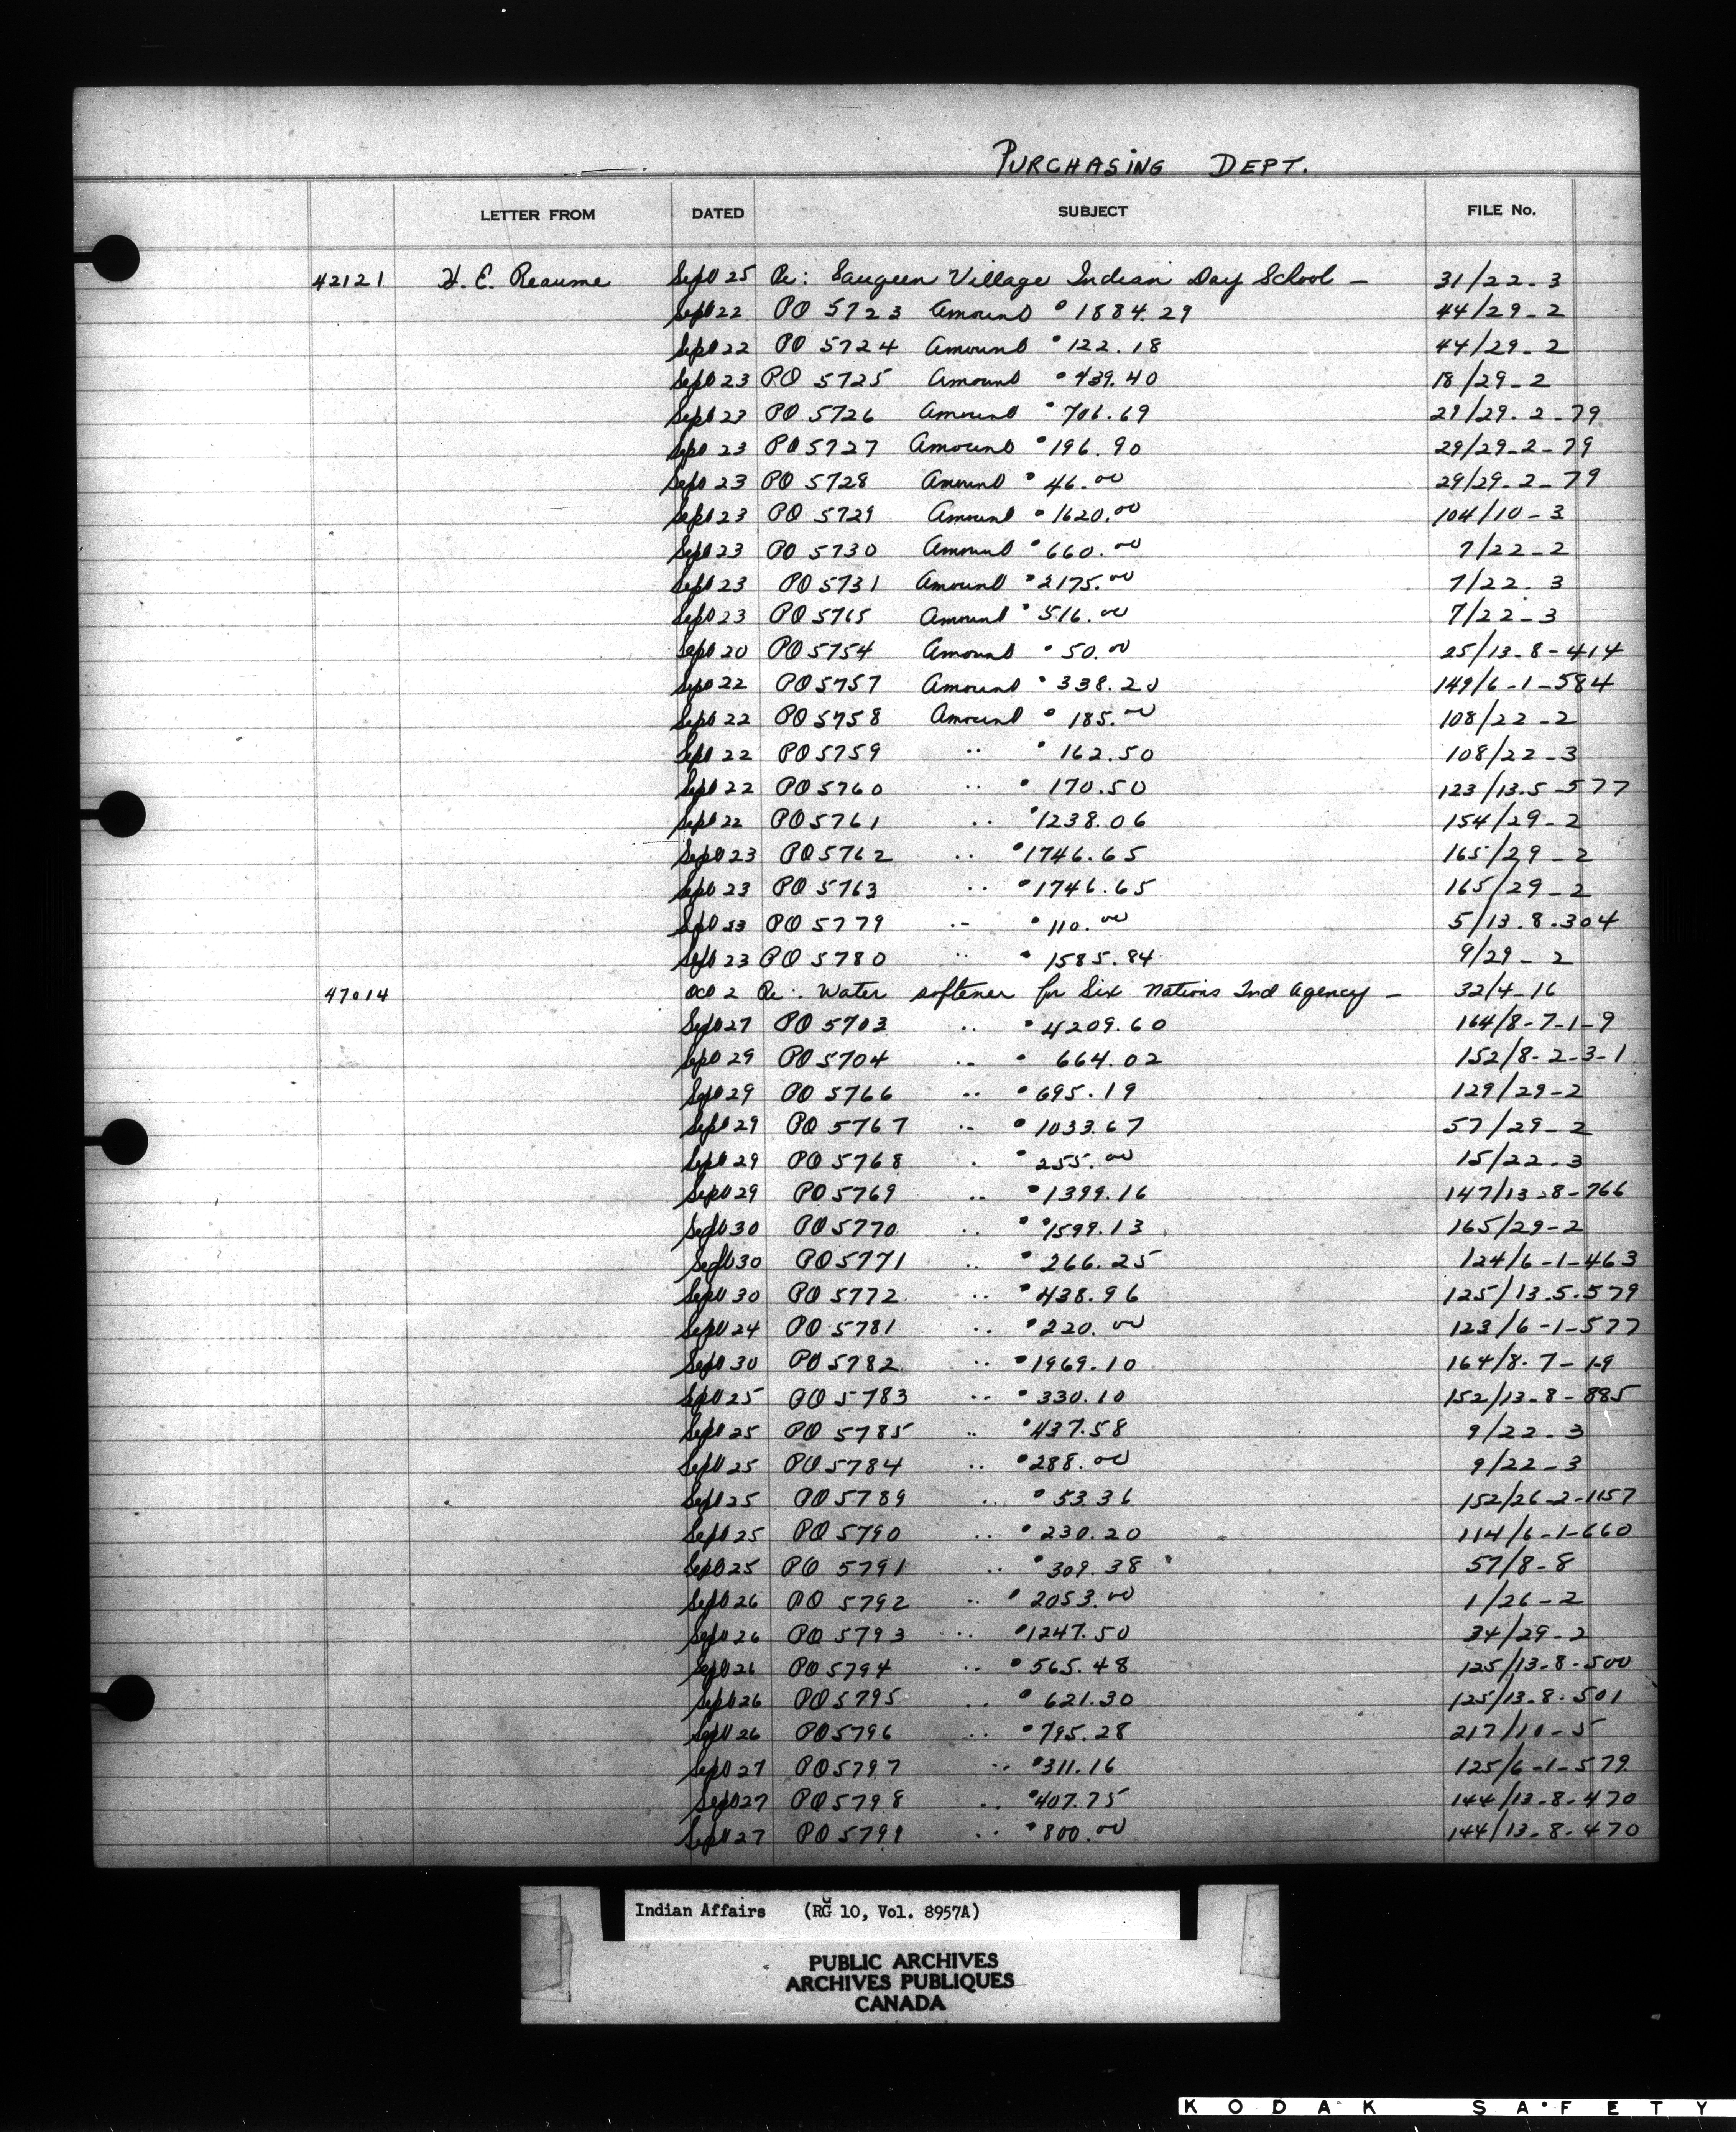 PURCHASING DEPT.
LETTER FROM DATED SUBJECT FILE No.
42121 H. E. Reaume Sept 25 Re: Saugeen Village Indian Day School — 31/22-3
Sept 22 PO 5723 Amount $1884.29 44/29-2
Sept 22 PO 5724 Amount $122.18 44/29-2
Sept 23 PO 5725 Amount $439.40 18/29-2
Sept 23 PO 5726 Amount $706.69 29/29-2-79
Sept 23 PO 5727 Amount $196.90 29/29-2-79
Sept 23 PO 5728 Amount $46.00 29/29-2-79
Sept 23 PO 5729 Amount $1620.00 104/10-3
Sept 23 PO 5730 Amount $660.00 7/22-2
Sept 23 PO 5731 Amount $2175.00 7/22-3
Sept 23 PO 5765 Amount $516.00 7/22-3
Sept 20 PO 5754 Amount $50.00 25/13-8-414
Sept 22 PO 5757 Amount $338.20 149/6-1-584
Sept 22 PO 5758 Amount $185.00 108/22-2
Sept 22 PO 5759 " $162.50 108/22-3
Sept 22 PO 5760 " $170.50 123/13-5-577
Sept 22 PO 5761 " $1238.06 154/29-2
Sept 23 PO 5762 " $1746.65 165/29-2
Sept 23 PO 5763 " $1746.65 165/29-2
Sept 23 PO 5779 " $110.00 5/13-8-304
Sept 23 PO 5780 " $1585.84 9/29-2
47014 Oct 2 Re: Water softener for Six Nations Ind Agency — 32/4-16
Sept 27 PO 5703 " $4209.60 164/8-7-1-9
Sept 29 PO 5704 " $664.02 152/8-2-3-1
Sept 29 PO 5766 " $695.19 129/29-2
Sept 29 PO 5767 " $1033.67 57/29-2
Sept 29 PO 5768 " $255.00 15/22-3
Sept 29 PO 5769 " $1399.16 147/13-8-766
Sept 30 PO 5770 " $1599.13 165/29-2
Sept 30 PO 5771 " $266.25 124/6-1-463
Sept 30 PO 5772 " $438.96 125/13-5-579
Sept 24 PO 5781 " $220.00 123/6-1-577
Sept 30 PO 5782 " $1969.10 164/8-7-1-9
Sept 25 PO 5783 " $330.10 152/13-8-885
Sept 25 PO 5785 " $437.58 9/22-3
Sept 25 PO 5784 " $288.00 9/22-3
Sept 25 PO 5789 " $53.36 152/26-2-1157
Sept 25 PO 5790 " $230.20 114/6-1-660
Sept 25 PO 5791 " $309.38 57/8-8
Sept 26 PO 5792 " $2053.00 1/26-2
Sept 26 PO 5793 " $1247.50 34/29-2
Sept 26 PO 5794 " $565.48 125/13-8-500
Sept 26 PO 5795 " $621.30 125/13-8-501
Sept 26 PO 5796 " $795.28 217/10-5
Sept 27 PO 5797 " $311.16 125/6-1-579
Sept 27 PO 5798 " $407.75 144/13-8-470
Sept 27 PO 5799 " $800.00 144/13-8-470
Indian Affairs (RG 10, Vol. 8957A)
PUBLIC ARCHIVES
ARCHIVES PUBLIQUES
CANADA
KODAK SAFETY